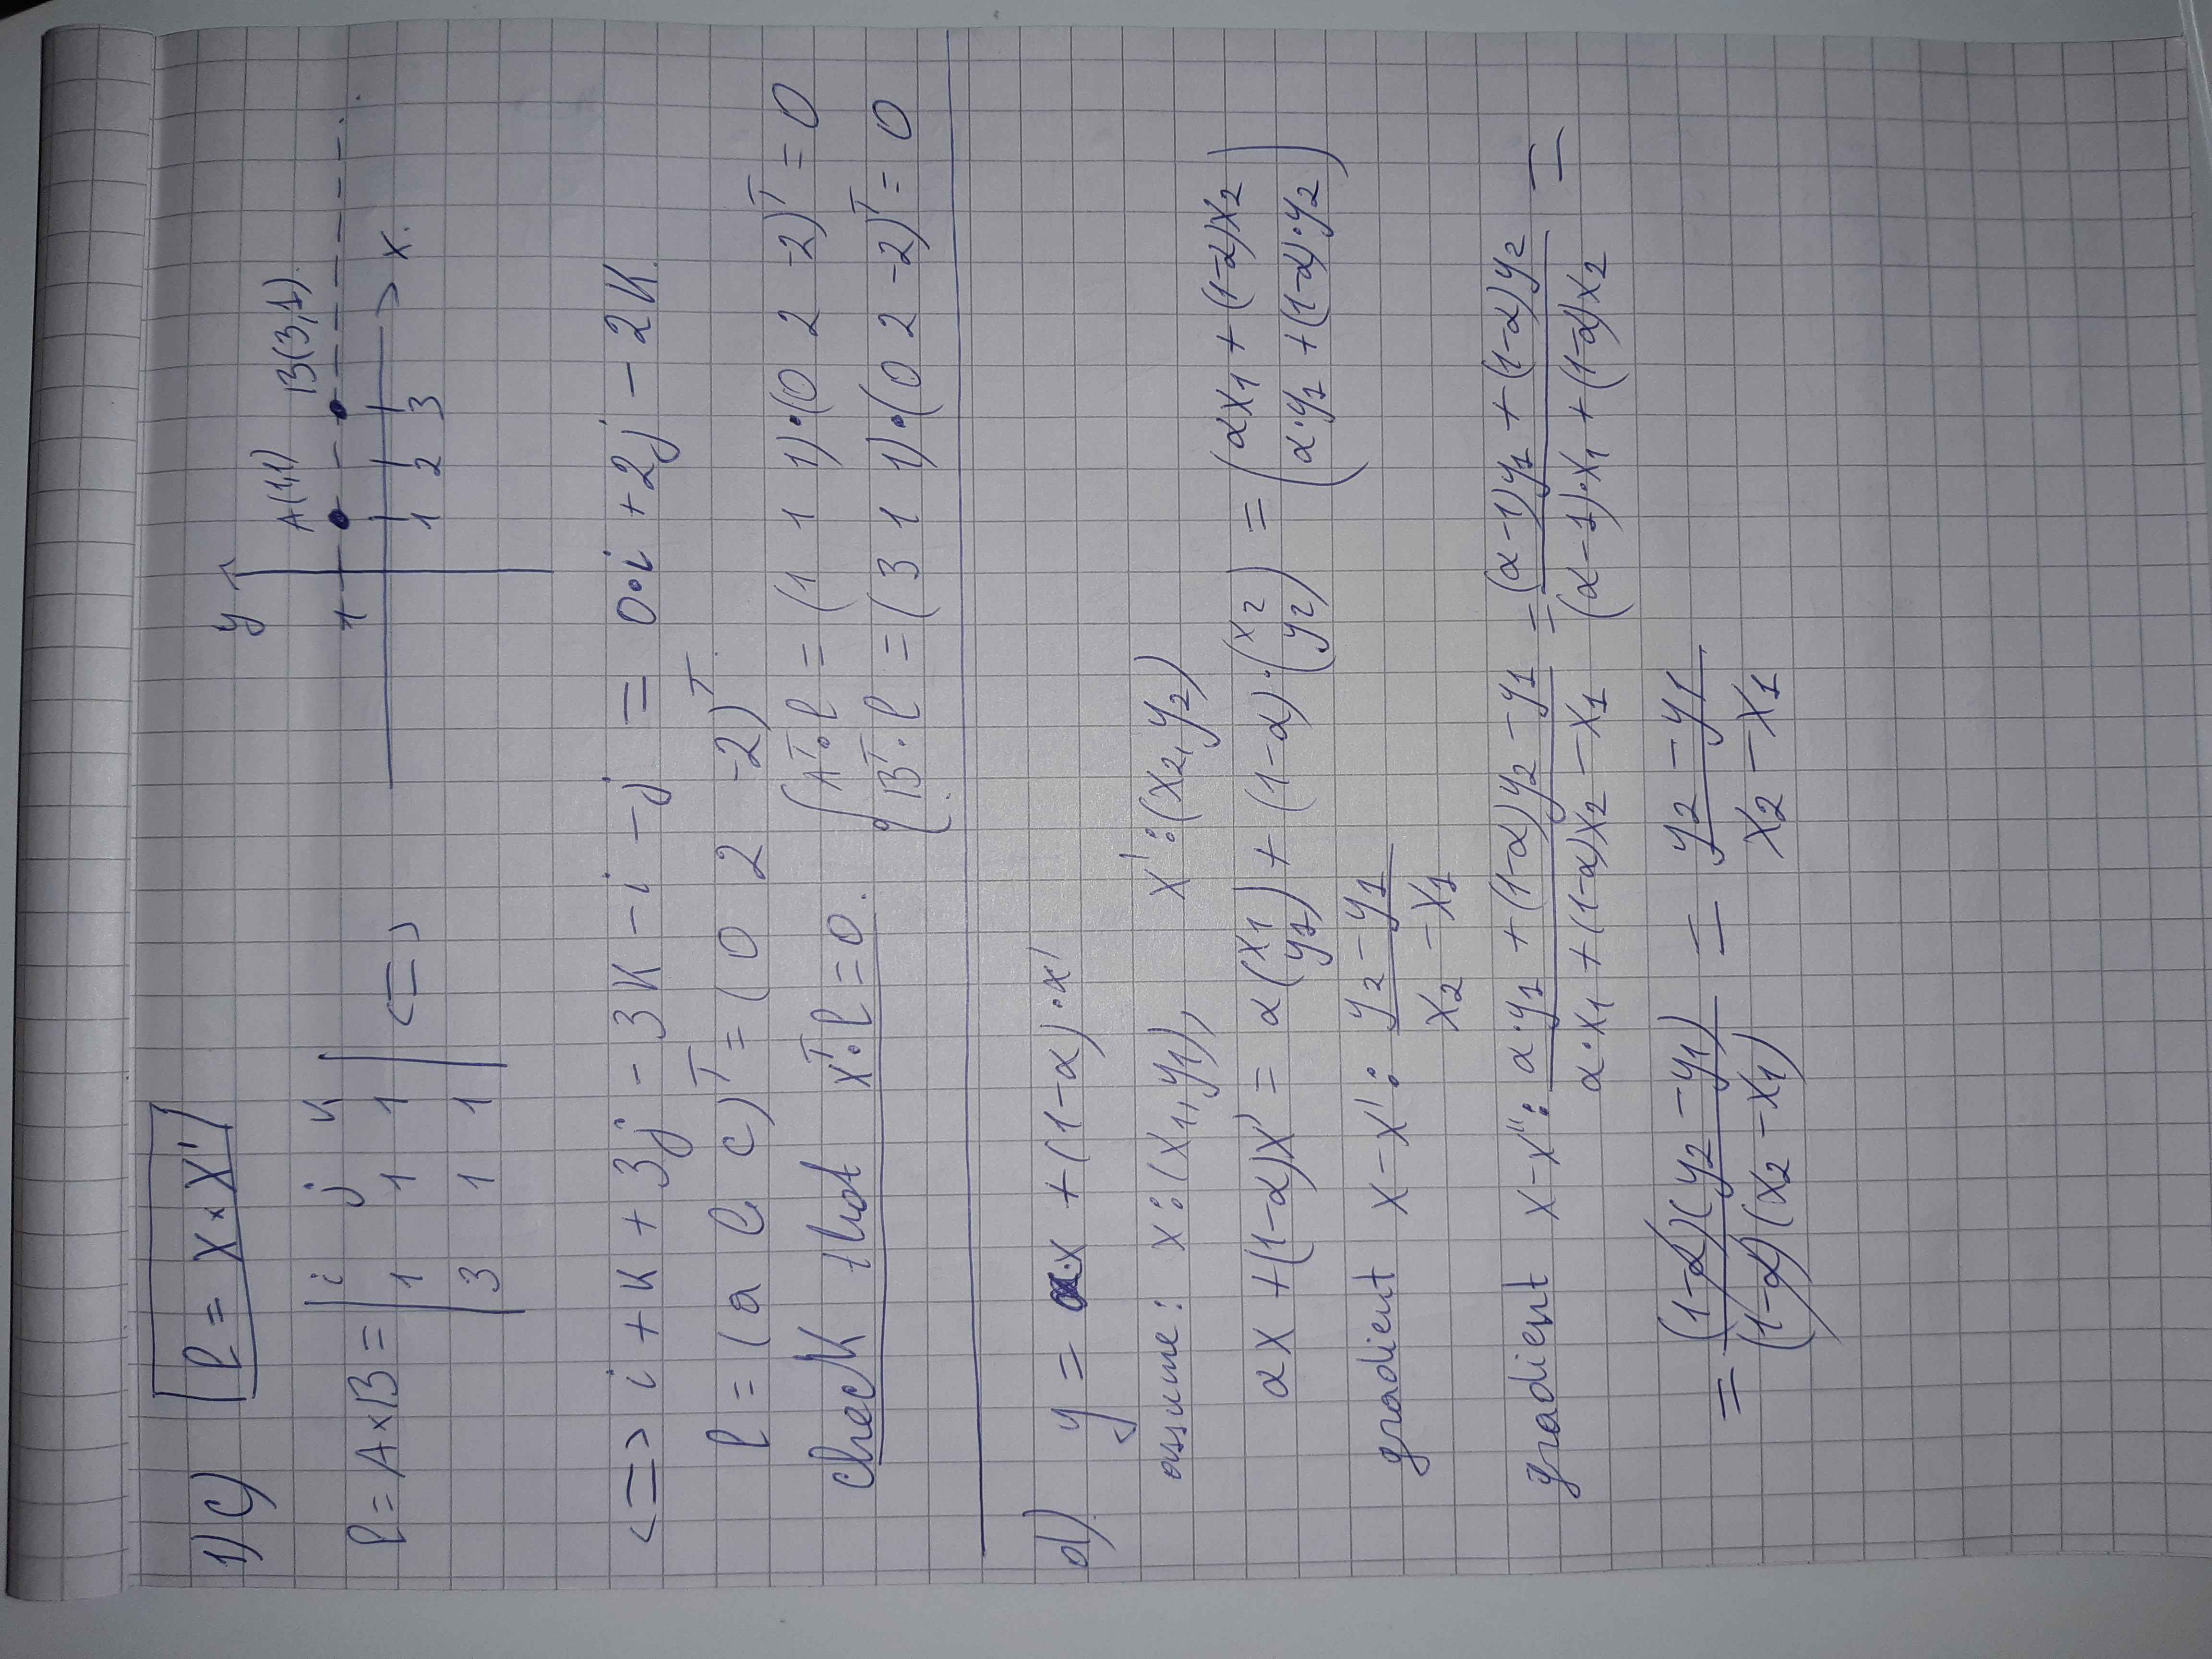 1) c) l = x × x'
y
A(1,1) B(3,1).
1
x.
1 2 3
l = A×B = | i j k |
| 1 1 1 | <=>
| 3 1 1 |
<=> i + k + 3j - 3k - i - j = 0·i + 2j - 2k.
l = (a b c)ᵀ = (0 2 -2)ᵀ.
check that xᵀ·l = 0.
Aᵀ·l = (1 1 1)·(0 2 -2)ᵀ = 0
Bᵀ·l = (3 1 1)·(0 2 -2)ᵀ = 0
d). y = α·x + (1-α)·x'
assume: x:(x₁, y₁), x':(x₂, y₂)
αx + (1-α)x' = α(x₁ y₁) + (1-α)·(x₂ y₂) = (αx₁ + (1-α)x₂ α·y₁ + (1-α)·y₂)
gradient x-x': (y₂ - y₁)/(x₂ - x₁)
gradient x-x'': (α·y₁ + (1-α)y₂ - y₁)/(α·x₁ + (1-α)x₂ - x₁) = ((α-1)y₁ + (1-α)y₂)/((α-1)·x₁ + (1-α)x₂) =
= ((1-α)(y₂ - y₁))/((1-α)(x₂ - x₁)) = (y₂ - y₁)/(x₂ - x₁)